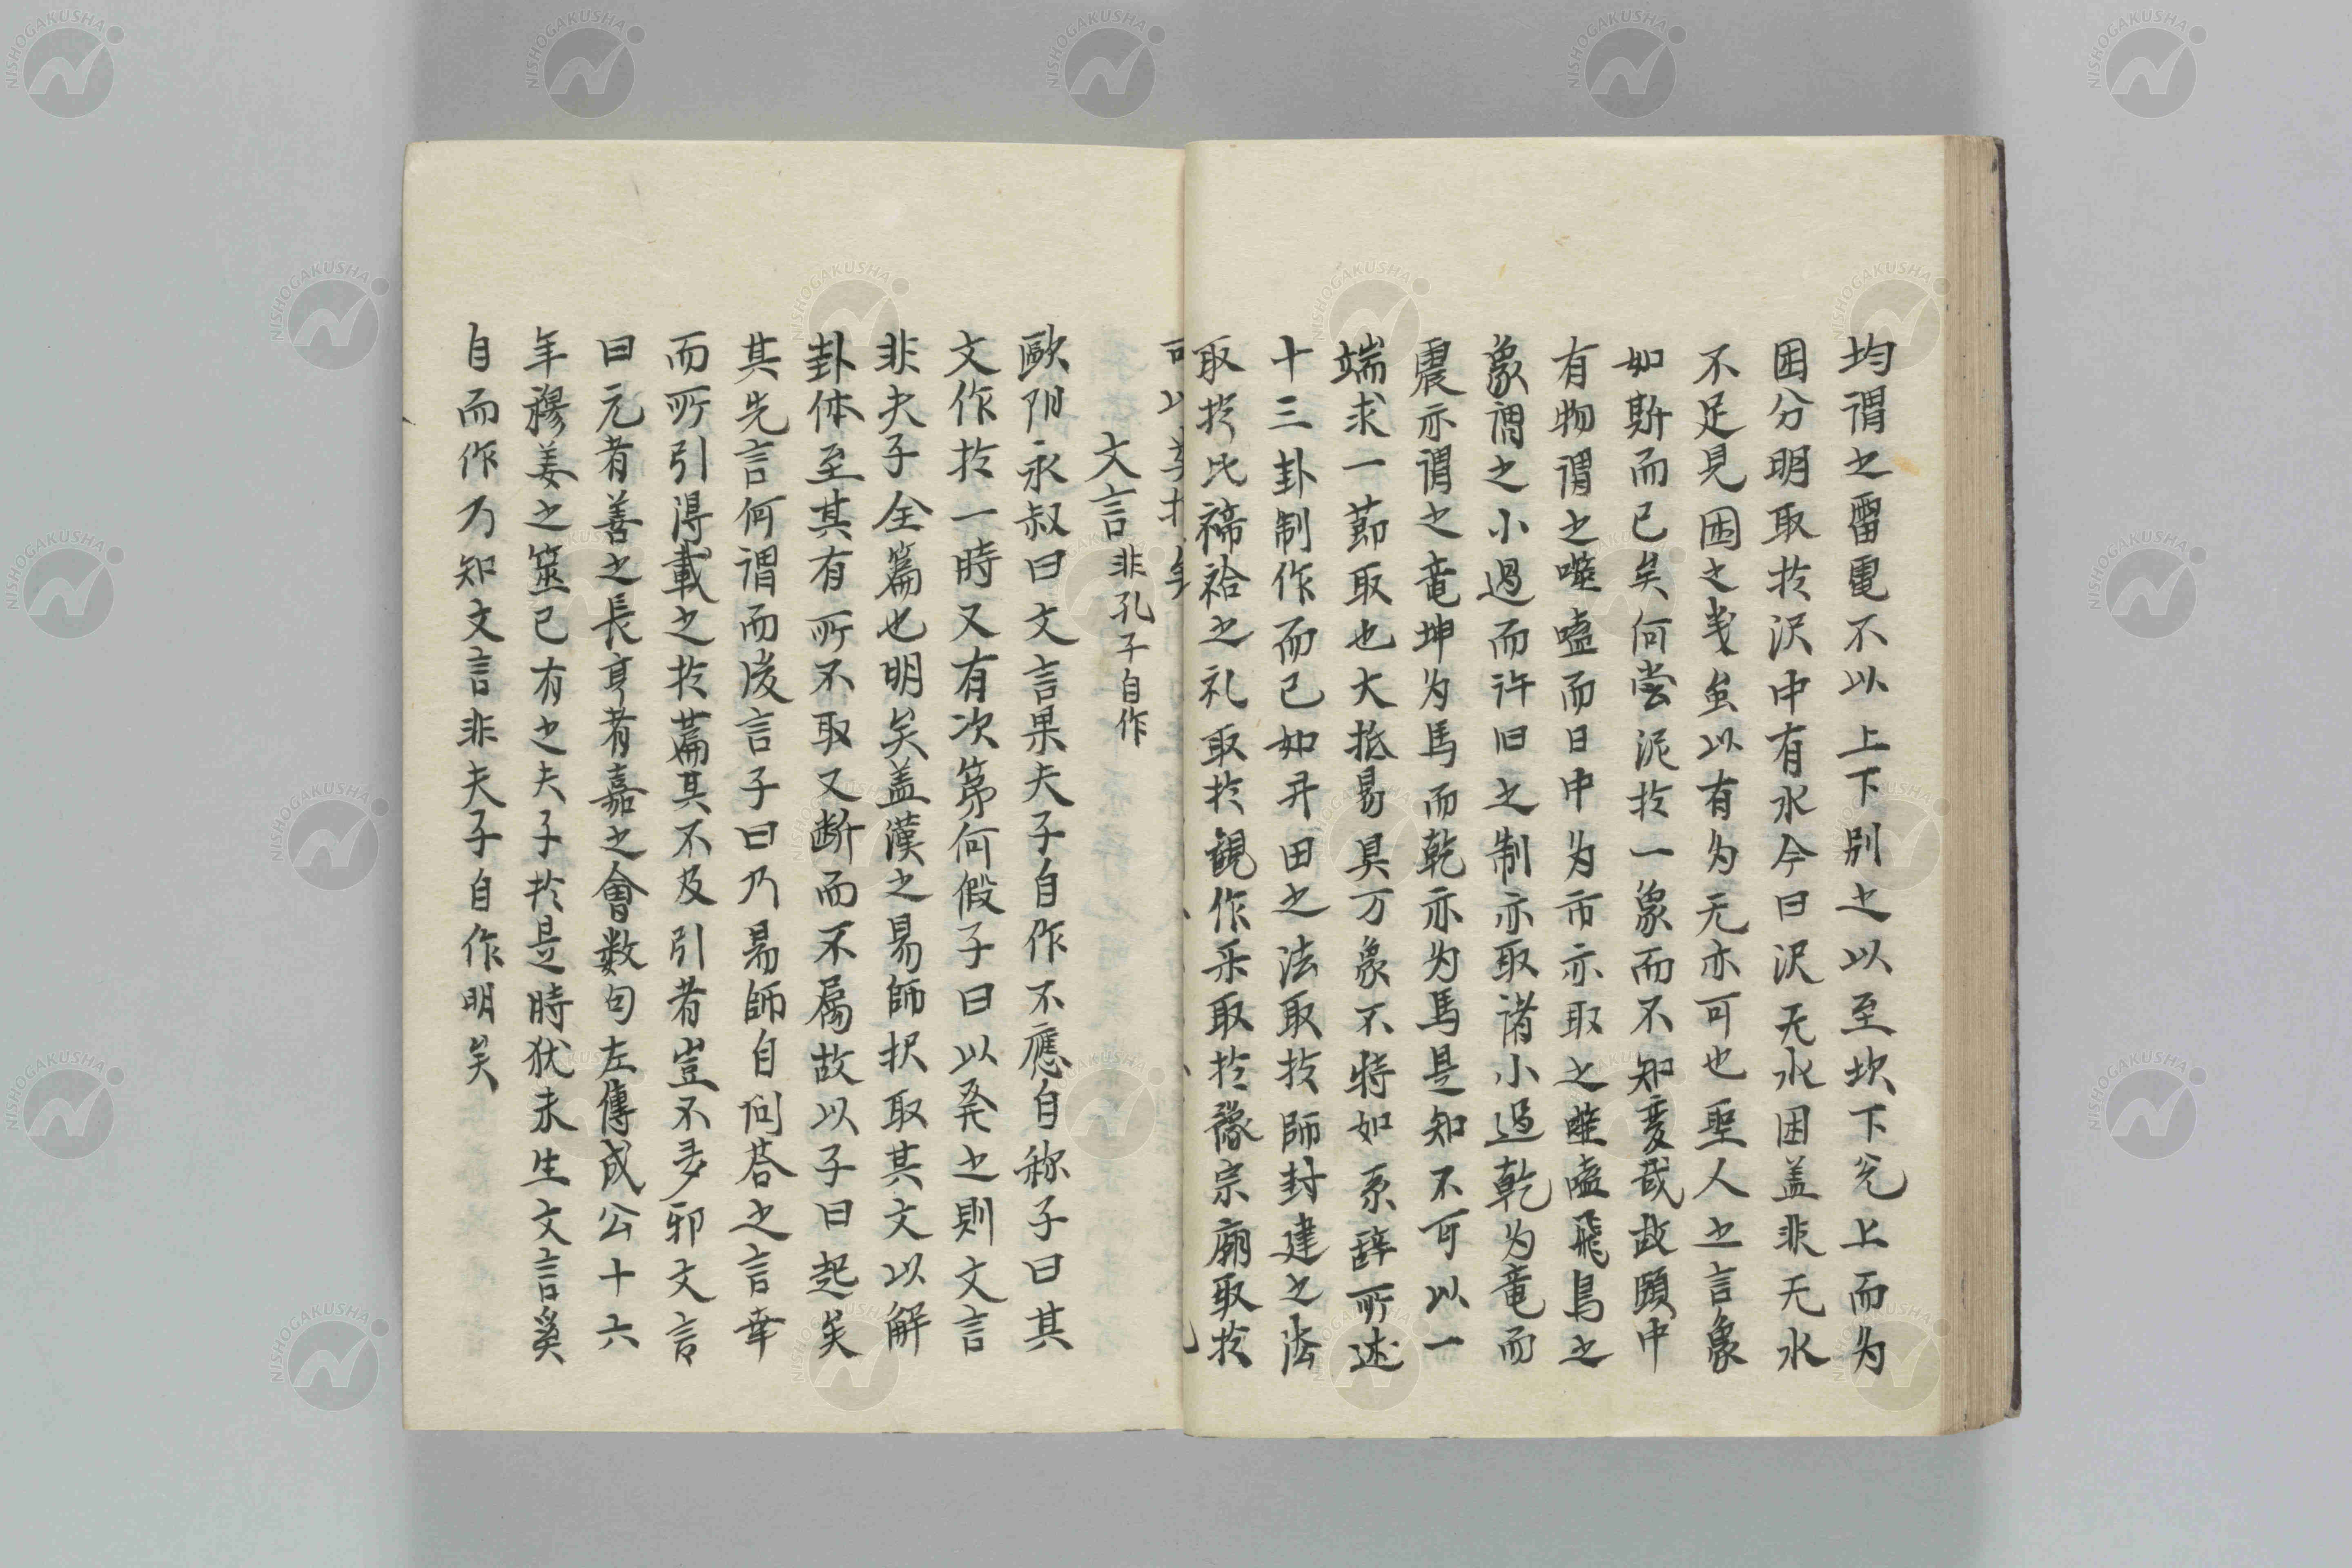 均謂之雷電不以上下別之以至坎下兌上而为
困分明取扵沢中有水今曰沢无水困盖非无水
不足見困之义虽以有为无亦可也聖人之言象
如斯而已矣何嘗泥扵一象而不知变哉故頤中
有物謂之噬嗑而日中为市亦取之噬嗑飛鳥之
象謂之小過而許旧之制亦取諸小過乾为竜而
震亦謂之竜坤为馬而乾亦为馬是知不可以一
端求一節取也大抵易具万象不特如系辞所述
十三卦制作而已如井田之法取扵師封建之法
取扵比禘祫之礼取扵観作乐取扵豫宗廟取扵
可以
文言非孔子自作
歐阳永叔曰文言果夫子自作不應自称子曰其
文作扵一時又有次第何假子曰以発之則文言
非夫子全篇也明矣盖漢之易師択取其文以解
卦体至其有所不取又断而不属故以子曰起矣
其先言何謂而后言子曰乃易師自问答之言幸
而所引得載之扵篇其不及引者豈不多邪文言
曰元者善之長亨者嘉之會数句左傳成公十六
年穆姜之筮已有之夫子扵是時犹未生文言奚
自而作乃知文言非夫子自作明矣
NISHOGAKUSHA